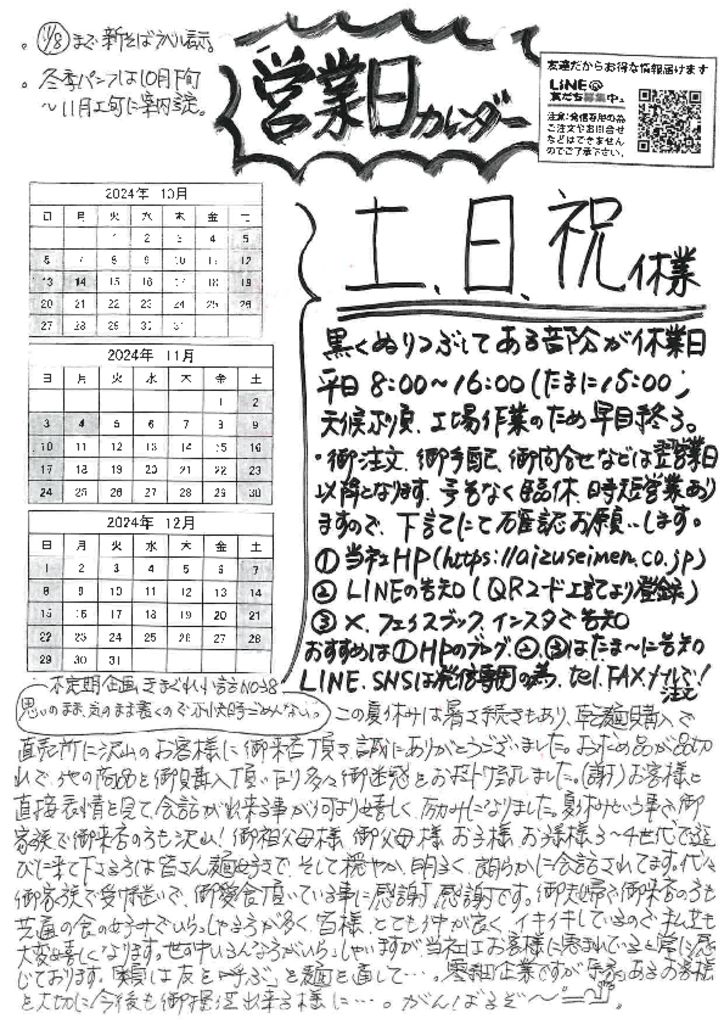 。11/8まで新そばラベル表示。
。冬季パンフは10月下旬
～11月上旬に案内予定。
営業日カレンダー
友達だからお得な情報届けます
LINE@
友だち募集中♪
注意:発信専用の為
ご注文やお問合せ
などはできません
のでご了承下さい。
2024年 10月
日 月 火 水 木 金 土
1 2 3 4 5
6 7 8 9 10 11 12
13 14 15 16 17 18 19
20 21 22 23 24 25 26
27 28 29 30 31
2024年 11月
日 月 火 水 木 金 土
1 2
3 4 5 6 7 8 9
10 11 12 13 14 15 16
17 18 19 20 21 22 23
24 25 26 27 28 29 30
2024年 12月
日 月 火 水 木 金 土
1 2 3 4 5 6 7
8 9 10 11 12 13 14
15 16 17 18 19 20 21
22 23 24 25 26 27 28
29 30 31
土、日、祝 休業
黒くぬりつぶしてある部分が休業日
平日 8:00～16:00(たまに15:00)
天候不順、工場作業のため早目終る。
・御注文、御手配、御問合せなどは翌営業日
以降となります。予告なく臨休、時短営業あり
ますので、下記にて確認お願いします。
①当社HP(https://aizuseimen.co.jp)
②LINEの告知(QRコード上記より登録)
③X、フェイスブック、インスタで告知
おすすめは①HPのブログ、②、③はたま～に告知
LINE、SNSは発信専用の為、tel、FAX、メールで!
注文
不定期企画 きまぐれ小話NO38
思いのまま、気のまま書くので不快時ごめんなさい。
この夏休みは暑さ続きもあり、乾麺購入で
直売所に沢山のお客様に御来店頂き誠にありがとうございました。お土産品が品切
れで、他の商品を御購入頂いたり多々御迷惑をおかけ致しました。(謝)お客様と
直接表情を見て会話が出来る事が何より嬉しく、励みになりました。夏休みという事で御
家族で御来店の方も沢山!御祖父母様、御父母様、お子様、お孫様3～4世代で遊
びに来て下さる方は皆さん麺好きで、そして穏やか、明るく、朗らかに会話されてます。代々
御家族で受け継いで、御愛食頂いている事に感謝!感謝です。御夫婦で御来店の方も
共通の食の好みでいらっしゃる方が多く、皆様、とても仲が良く、イキイキしているので私共も
大変嬉しくなります。世の中いろんな方がいらっしゃいますが当社はお客様に恵まれていると常に感
じております。「類は友を呼ぶ」を麺を通して…。零細企業ですが、縁あるお客様
を大切に今後も御提供出来る様に…。がんばるぞ～